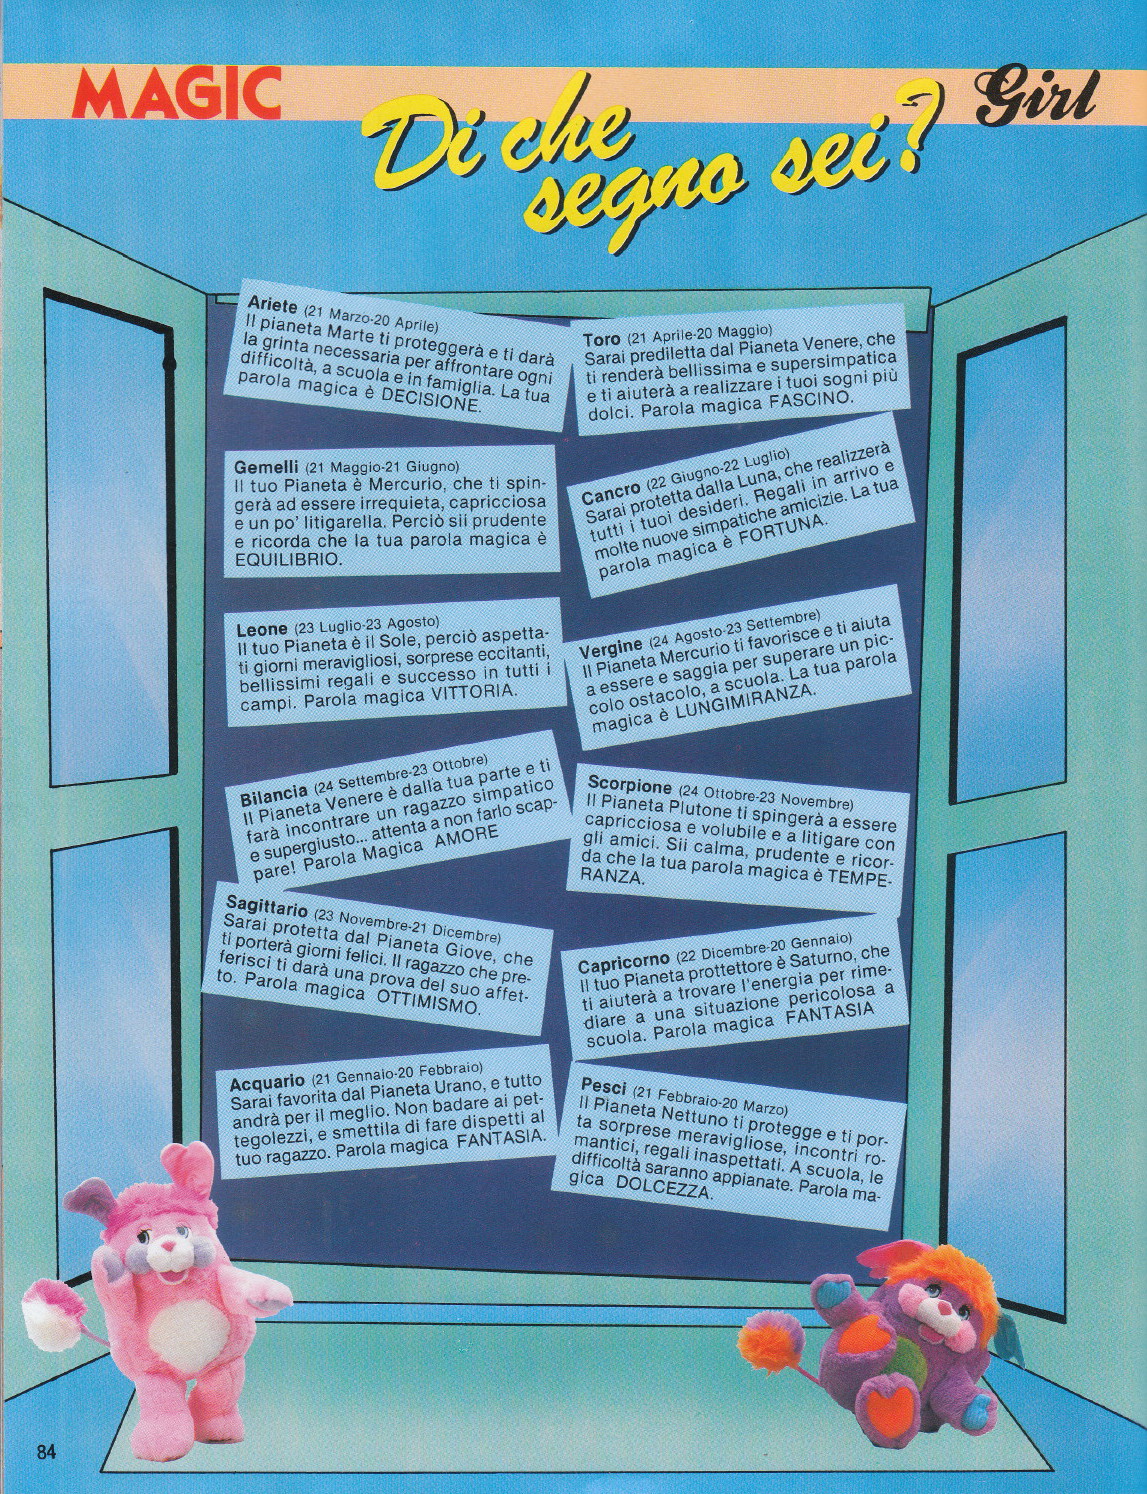 MAGIC
Di che
segno sei?
Girl
Ariete (21 Marzo-20 Aprile)
Il pianeta Marte ti proteggerà e ti darà
la grinta necessaria per affrontare ogni
difficoltà, a scuola e in famiglia. La tua
parola magica è DECISIONE.
Toro (21 Aprile-20 Maggio)
Sarai prediletta dal Pianeta Venere, che
ti renderà bellissima e supersimpatica
e ti aiuterà a realizzare i tuoi sogni più
dolci. Parola magica FASCINO.
Gemelli (21 Maggio-21 Giugno)
Il tuo Pianeta è Mercurio, che ti spin-
gerà ad essere irrequieta, capricciosa
e un po' litigarella. Perciò sii prudente
e ricorda che la tua parola magica è
EQUILIBRIO.
Cancro (22 Giugno-22 Luglio)
Sarai protetta dalla Luna, che realizzerà
tutti i tuoi desideri. Regali in arrivo e
molte nuove simpatiche amicizie. La tua
parola magica è FORTUNA.
Leone (23 Luglio-23 Agosto)
Il tuo Pianeta è il Sole, perciò aspetta-
ti giorni meravigliosi, sorprese eccitanti,
bellissimi regali e successo in tutti i
campi. Parola magica VITTORIA.
Vergine (24 Agosto-23 Settembre)
Il Pianeta Mercurio ti favorisce e ti aiuta
a essere e saggia per superare un pic-
colo ostacolo, a scuola. La tua parola
magica è LUNGIMIRANZA.
Bilancia (24 Settembre-23 Ottobre)
Il Pianeta Venere è dalla tua parte e ti
farà incontrare un ragazzo simpatico
e supergiusto... attenta a non farlo scap-
pare! Parola Magica AMORE
Scorpione (24 Ottobre-23 Novembre)
Il Pianeta Plutone ti spingerà a essere
capricciosa e volubile e a litigare con
gli amici. Sii calma, prudente e ricor-
da che la tua parola magica è TEMPE-
RANZA.
Sagittario (23 Novembre-21 Dicembre)
Sarai protetta dal Pianeta Giove, che
ti porterà giorni felici. Il ragazzo che pre-
ferisci ti darà una prova del suo affet-
to. Parola magica OTTIMISMO.
Capricorno (22 Dicembre-20 Gennaio)
Il tuo Pianeta prottettore è Saturno, che
ti aiuterà a trovare l'energia per rime-
diare a una situazione pericolosa a
scuola. Parola magica FANTASIA
Acquario (21 Gennaio-20 Febbraio)
Sarai favorita dal Pianeta Urano, e tutto
andrà per il meglio. Non badare ai pet-
tegolezzi, e smettila di fare dispetti al
tuo ragazzo. Parola magica FANTASIA.
Pesci (21 Febbraio-20 Marzo)
Il Pianeta Nettuno ti protegge e ti por-
ta sorprese meravigliose, incontri ro-
mantici, regali inaspettati. A scuola, le
difficoltà saranno appianate. Parola ma-
gica DOLCEZZA.
84